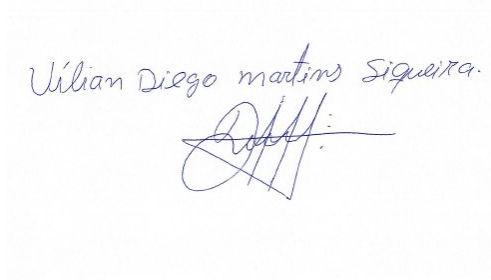 Uílian Diego martins Siqueira.